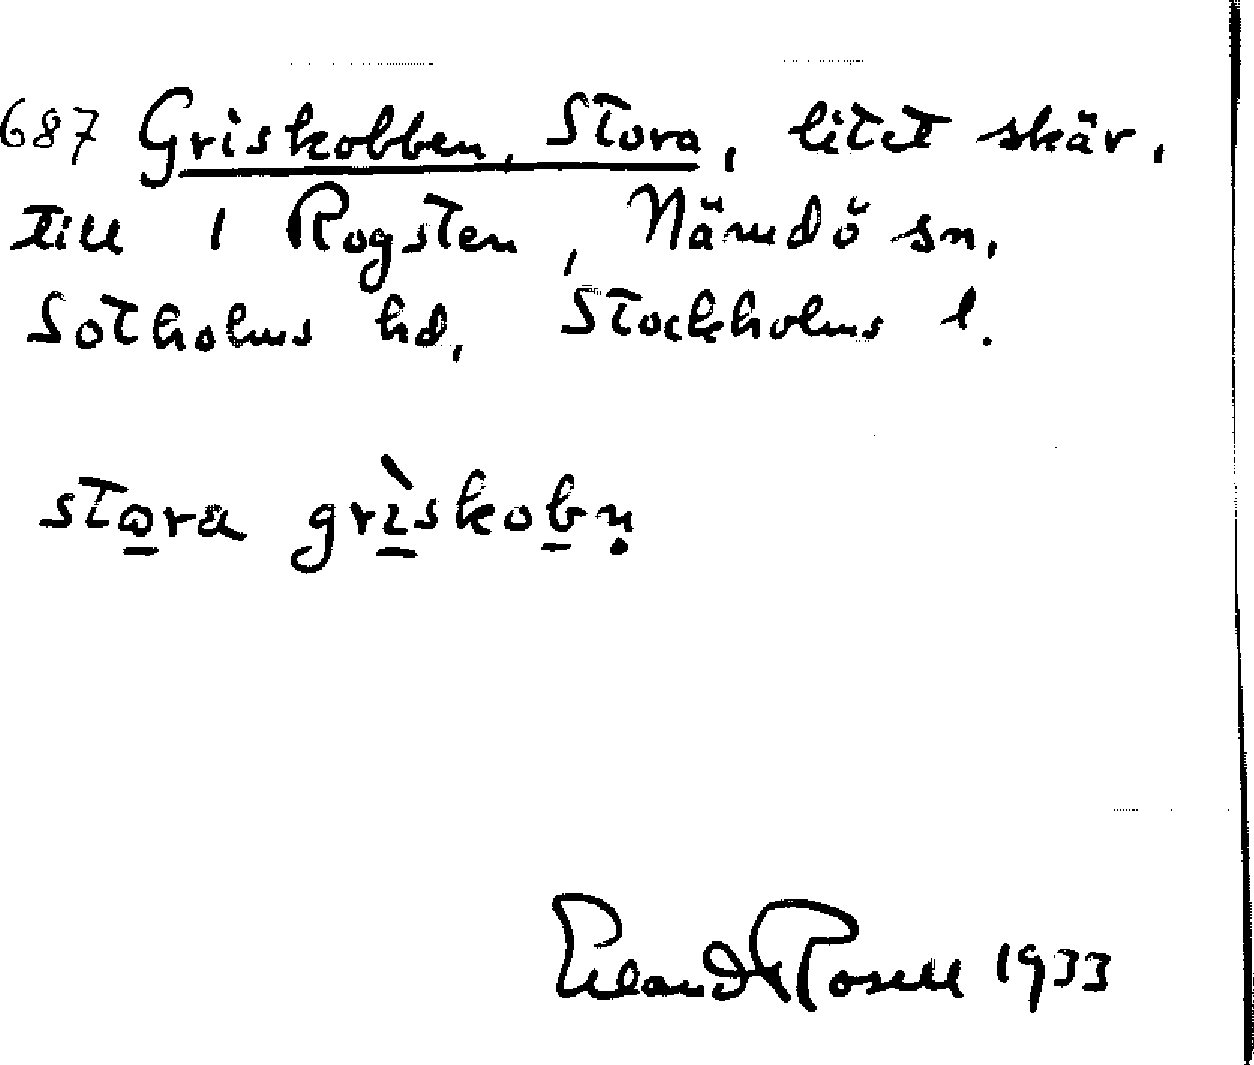 687 Griskobben, Stora, litet skär,
till 1 Rogsten, Nämdö sn,
Sotholms hd, Stockholms l.
stora grìskobṇ
Erland Rosell 1933